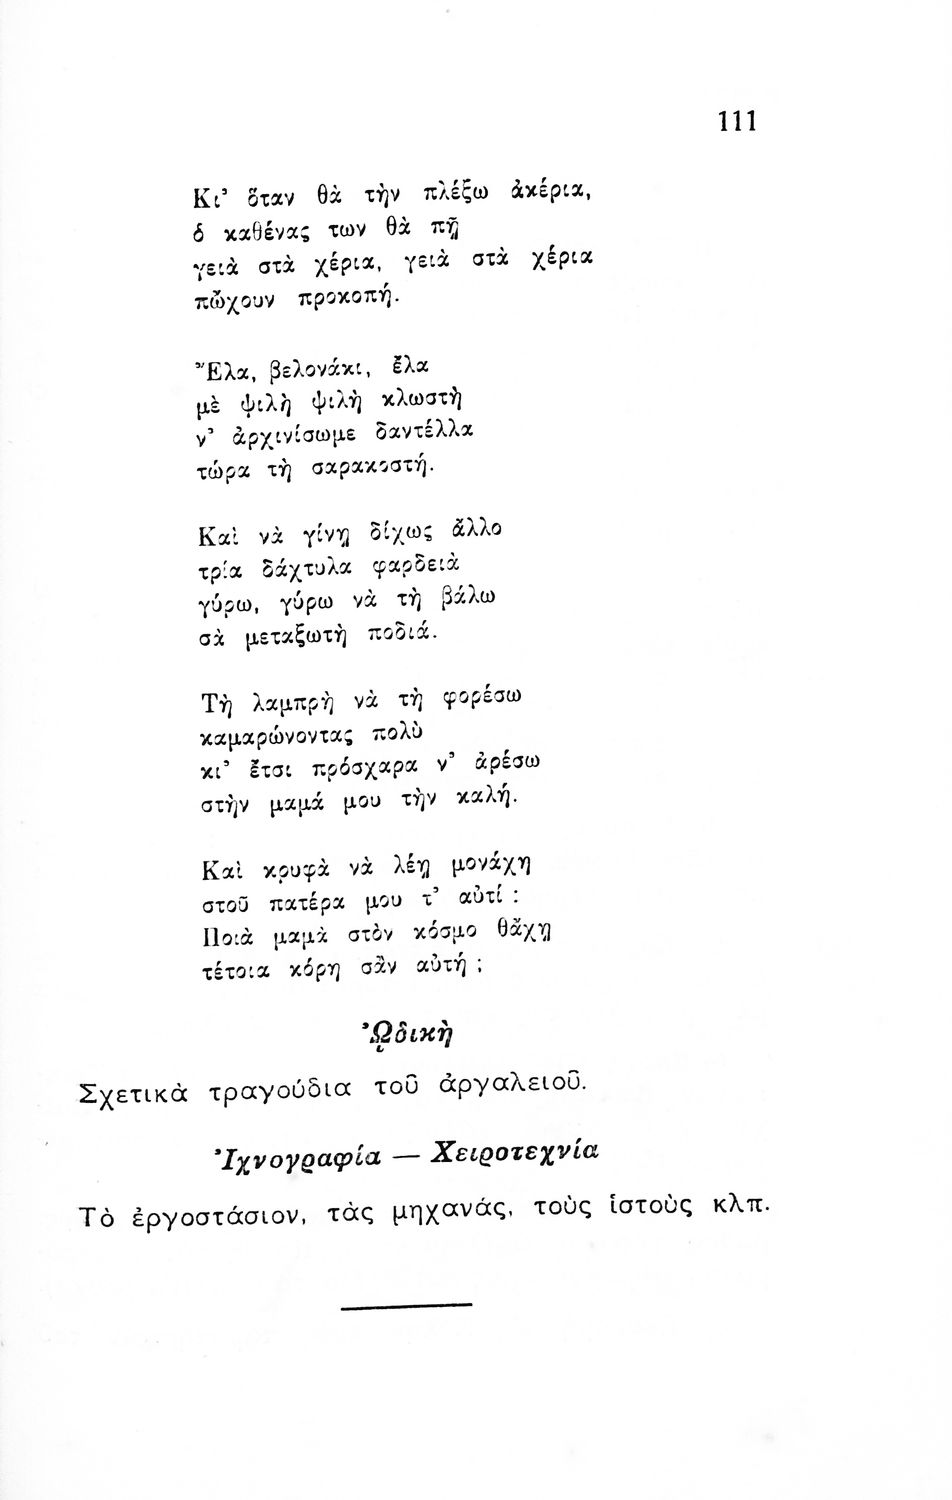 111
Κι’ ὅταν θὰ τὴν πλέξω ἀκέρια,
ὁ καθένας των θὰ πῇ
γειὰ στὰ χέρια, γειὰ στὰ χέρια
πὤχουν προκοπή.
Ἔλα, βελονάκι, ἔλα
μὲ ψιλὴ ψιλὴ κλωστὴ
ν’ ἀρχινίσωμε δαντέλλα
τώρα τὴ σαρακοστή.
Καὶ νὰ γίνῃ δίχως ἄλλο
τρία δάχτυλα φαρδειὰ
γύρω, γύρω νὰ τὴ βάλω
σὰ μεταξωτὴ ποδιά.
Τὴ λαμπρὴ νὰ τὴ φορέσω
καμαρώνοντας πολὺ
κι’ ἔτσι πρόσχαρα ν’ ἀρέσω
στὴν μαμά μου τὴν καλή.
Καὶ κρυφὰ νὰ λέῃ μονάχη
στοῦ πατέρα μου τ’ αὐτί :
Ποιὰ μαμὰ στὸν κόσμο θἄχῃ
τέτοια κόρη σὰν αὐτή ;
ᾨδικὴ
Σχετικὰ τραγούδια τοῦ ἀργαλειοῦ.
Ἰχνογραφία — Χειροτεχνία
Τὸ ἐργοστάσιον, τὰς μηχανάς, τοὺς ἱστοὺς κλπ.